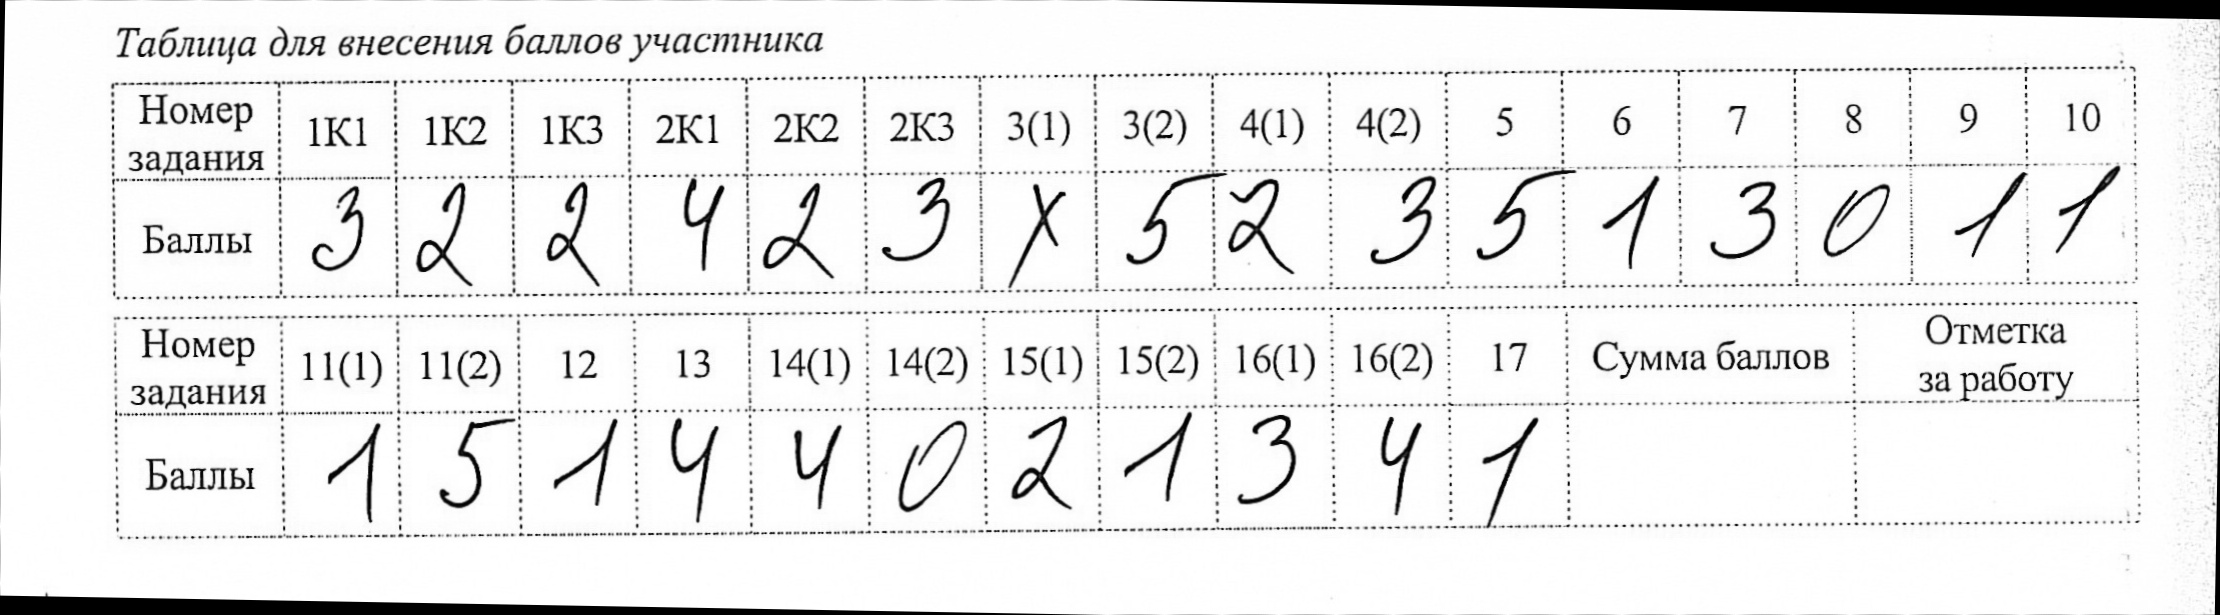 Таблица для внесения баллов участника
Номер задания 1К1 1К2 1К3 2К1 2К2 2К3 3(1) 3(2) 4(1) 4(2) 5 6 7 8 9 10
Баллы 3 2 2 4 2 3 X 5 2 3 5 1 3 0 1 1
Номер задания 11(1) 11(2) 12 13 14(1) 14(2) 15(1) 15(2) 16(1) 16(2) 17 Сумма баллов Отметка за работу
Баллы 1 5 1 4 4 0 2 1 3 4 1